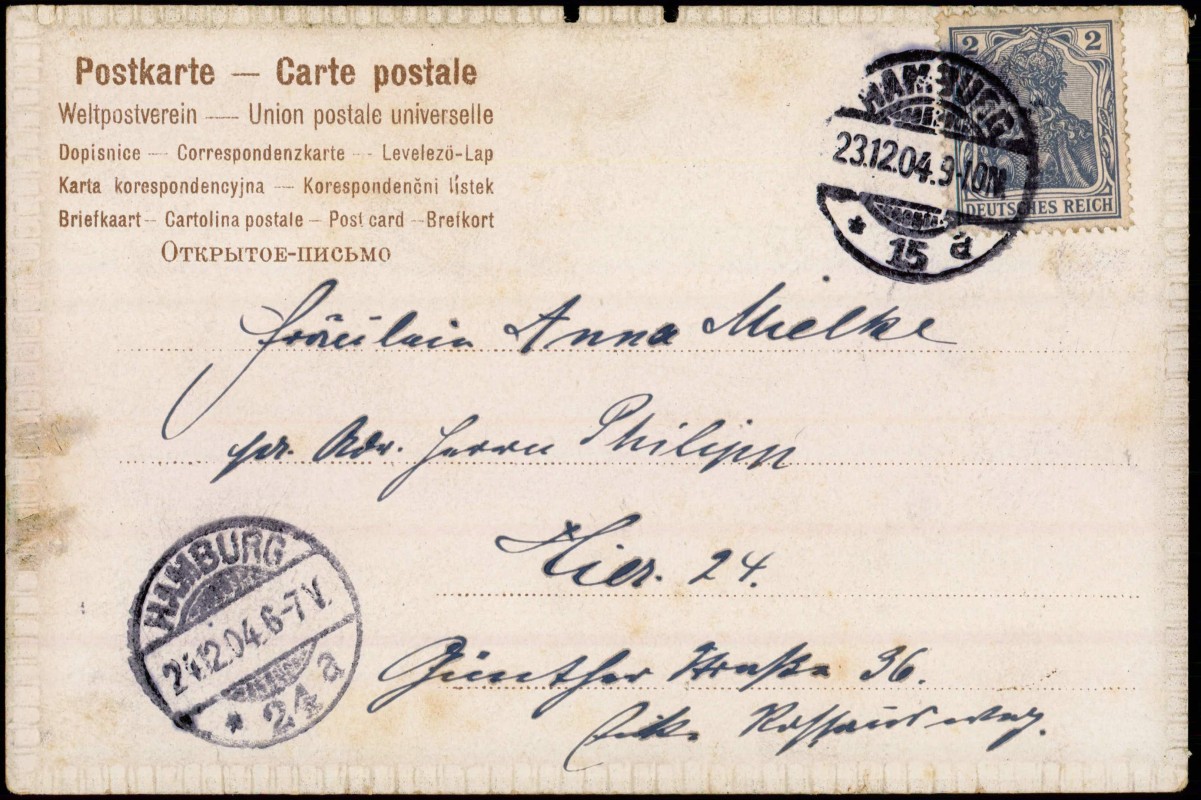 Postkarte — Carte postale
Weltpostverein — Union postale universelle
Dopisnice — Correspondenzkarte — Levelező-Lap
Karta korespondencyjna — Korespondenčni lístek
Briefkaart — Cartolina postale — Post card — Brefkort
Открытое-письмо
HAMBURG
23.12.04.9-10N
* 15 a
2 2
DEUTSCHES REICH
Fräulein Anna Mielke
pr. Adr. Herrn Philipp
Hier. 24.
HAMBURG
24.12.04.6-7V.
* 24 a
Günther Straße 36.
Ecke